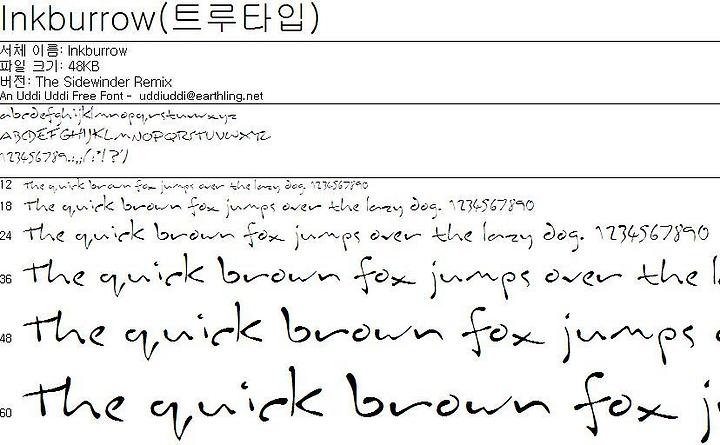 Inkburrow(트루타입)
서체 이름: Inkburrow
파일 크기: 48KB
버전: The Sidewinder Remix
An Uddi Uddi Free Font -  uddiuddi@earthling.net
abcdefghijklmnopqrstuvwxyz
ABCDEFGHIJKLMNOPQRSTUVWXYZ
123456789.:,;(:*!?')
12 The quick brown fox jumps over the lazy dog. 1234567890
18 The quick brown fox jumps over the lazy dog. 1234567890
24 The quick brown fox jumps over the lazy dog. 1234567890
36 The quick brown fox jumps over the l
48 The quick brown fox jumps
60 The quick brown fox ju